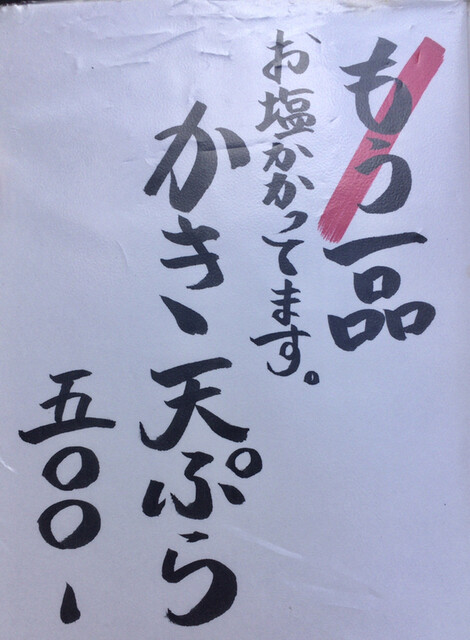 もう一品
お塩かかってます。
かき、天ぷら
五〇〇、